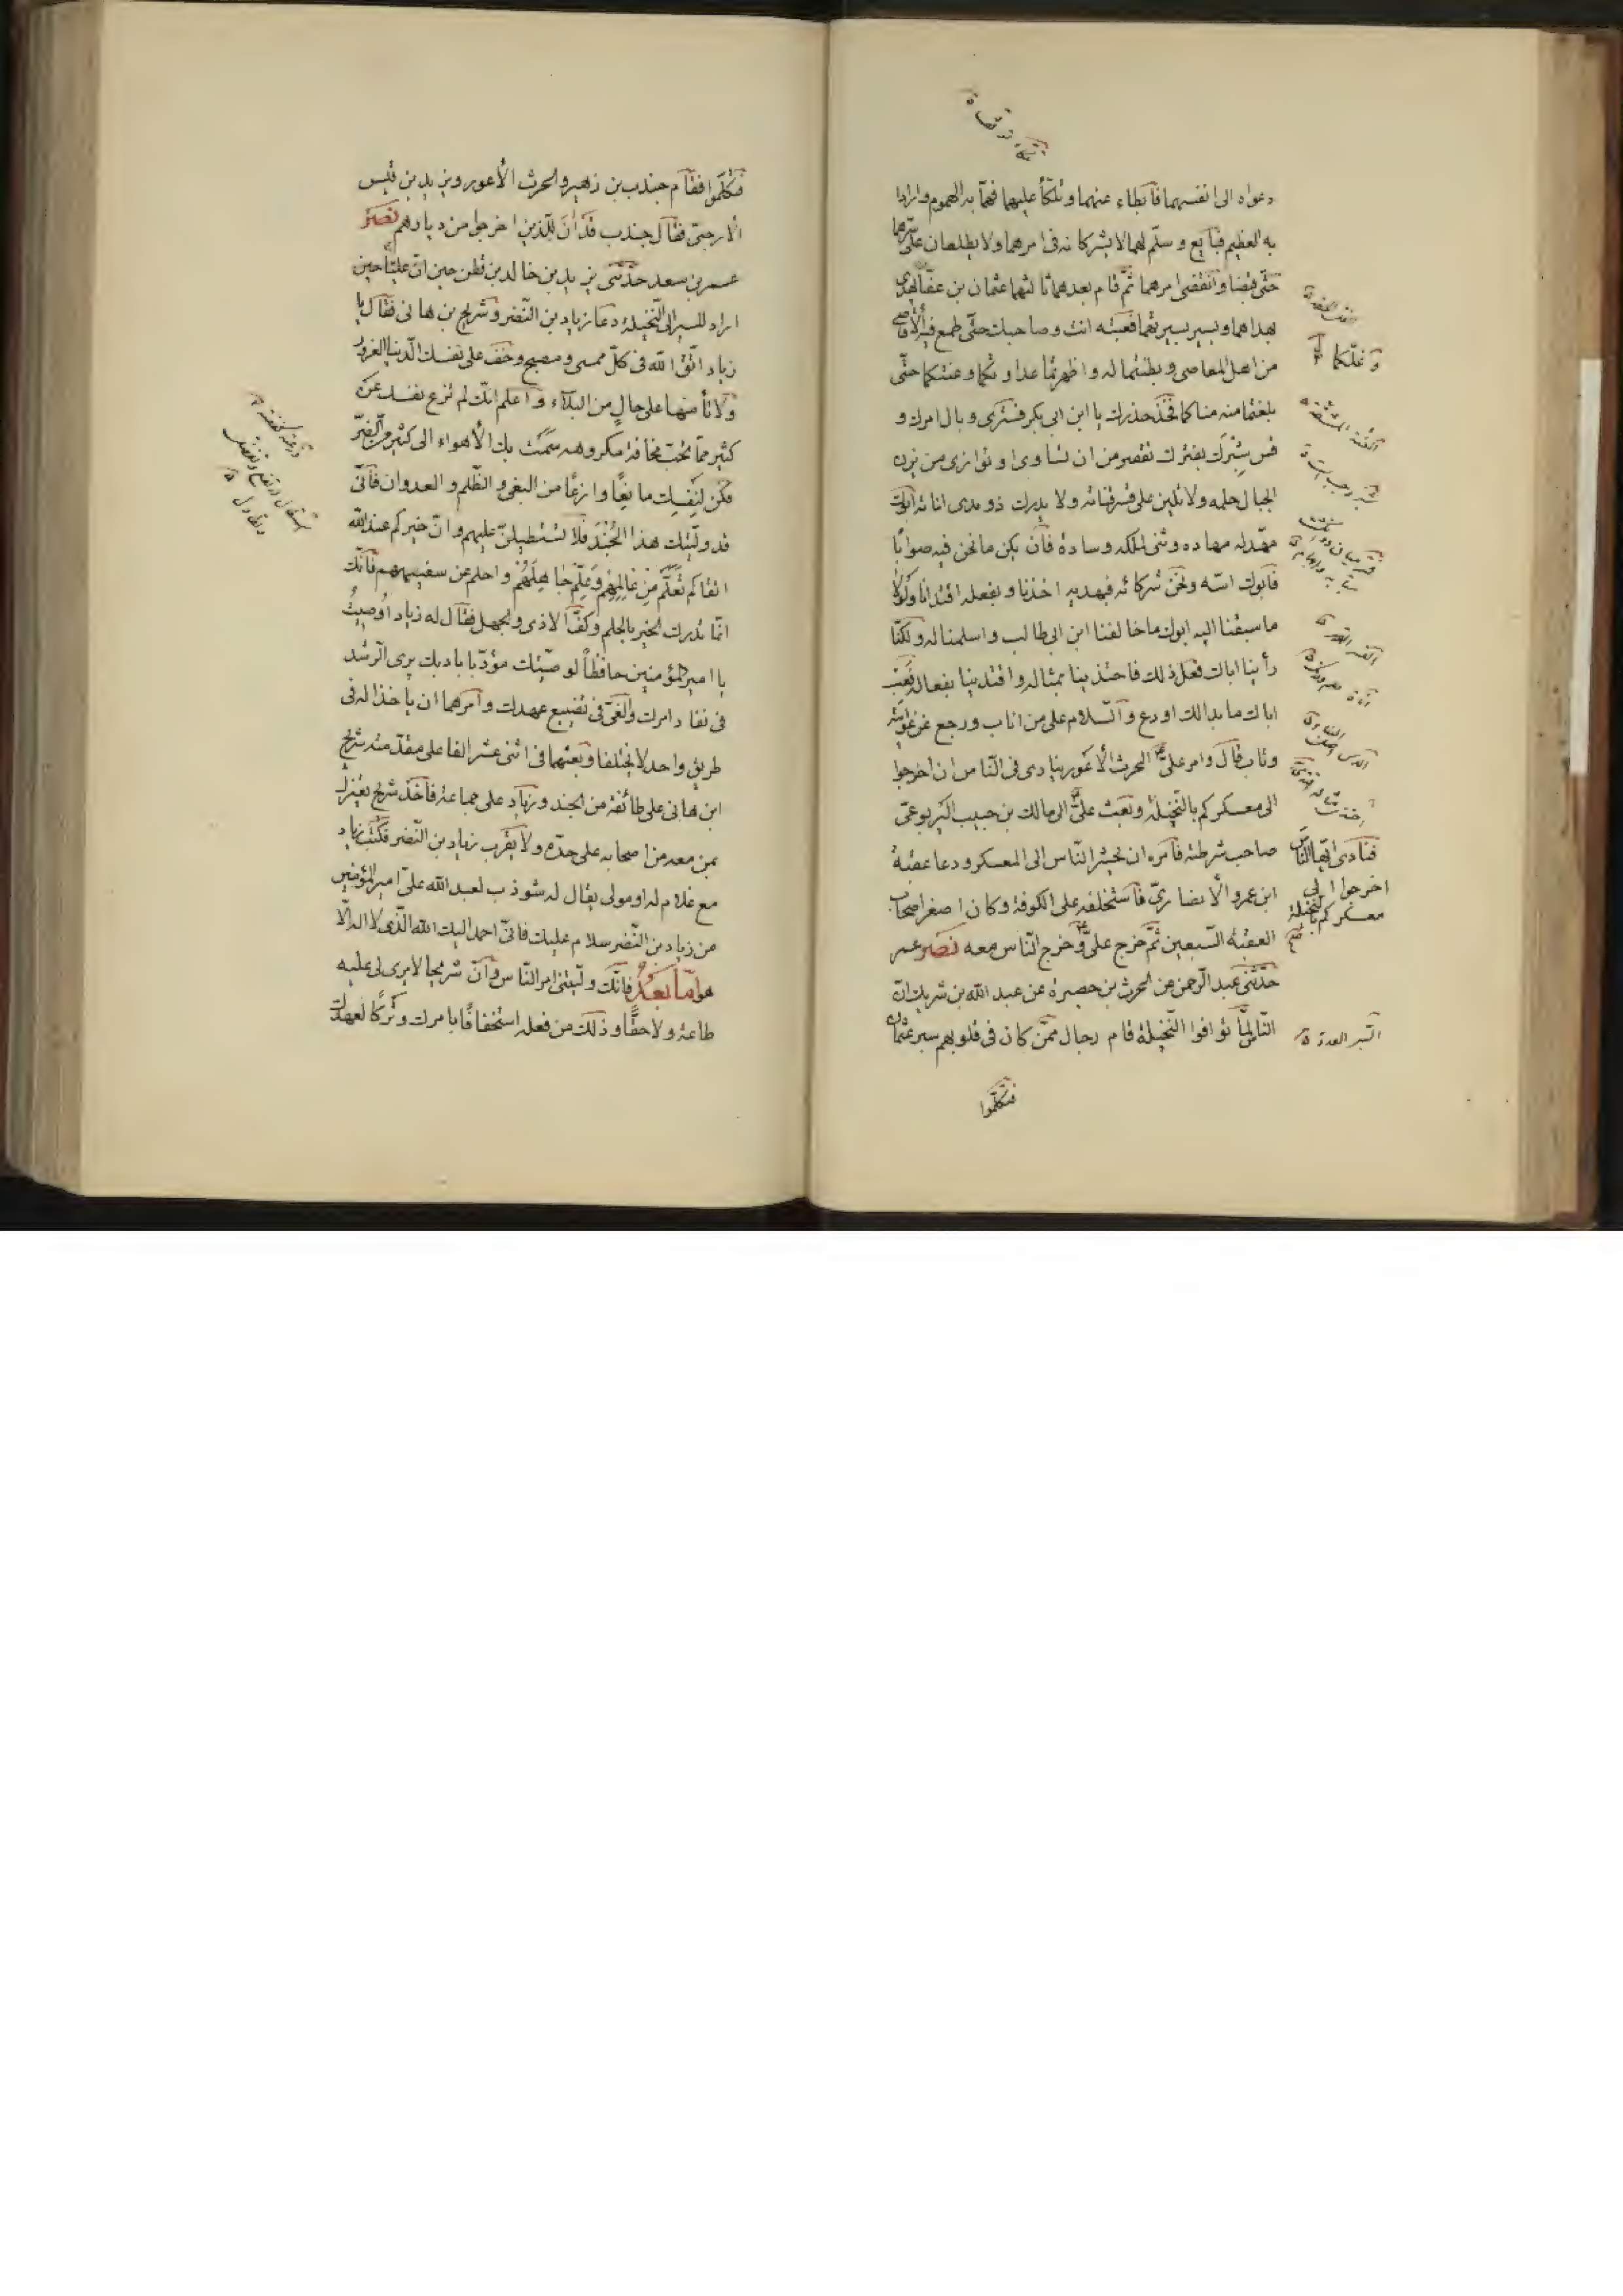 دعواه الى انفسهما فابطاء عنهما وتلكأ عليهما فهما به الهموم وارادا
به العظيم فبايع وسلّم لهما لا يشركانه فى امرهما ولا يطلعان على سرّهما
حتّى قبضا وانقضى امرهما ثمّ قام بعدهما ثالثهما عثمان بن عفّان يهدى
بهداهما ويسير بسيرتهما فعبته انت وصاحبك حتّى طمع فيه الأقاصى
من اهل المعاصى وبطنتما له واظهرتما عداوتكما وغشّكما حتّى
وغلّكما
بلغتما منه مناكما فخذ حذرك يا ابن ابى بكر فسترى وبال امرك و
قس شبرك بفترك تقصر من ان تساوى او توازى من يزن
الجبال حلمه ولا تلين على قسر قناته ولا يدرك ذو مدى اناته ابوك
مهّد له مهاده وثنى لملكه وساده فان يكن ما نحن فيه صوابًا
فابوك اسّه ونحن شركائه فبهديه اخذنا وبفعله اقتدانا ولولا
ما سبقنا اليه ابوك ما خالفنا ابن ابى طالب واسلمنا له ولكنّا
رأينا اباك فعل ذلك فاحتذينا بمثاله واقتدينا بفعاله فعب
اباك ما بدا لك او دع والسّلام على من اناب ورجع عن غوايته
وتاب قال وامر علىّ الحرث الأعور ينادى فى النّاس ان اخرجوا
الى معسكركم بالنّخيلة وبعث علىّ الى مالك بن حبيب اليربوعىّ
فنادى ايّها النّاس اخرجوا الى معسكركم بالنخيلة
صاحب شرطته فامره ان يحشر النّاس الى المعسكر ودعا عقبة
ابن عمرو الأنصارىّ فاستخلفه على الكوفة وكان اصغر اصحاب
العقبة السّبعين ثمّ خرج علىّ وخرج النّاس معه نصر عمر
حدّثنى عبد الرّحمن عن الحرث بن حصيرة عن عبد الله بن شريك انّ
النّاس لمّا توافوا النّخيلة قام رجال ممّن كان فى قلوبهم سير عثمان
فتكلّموا
فتكلّموا فقام جندب بن زهير والحرث الأعور ويزيد بن قيس
الأرحبىّ فقال جندب قد ان للّذين اخرجوا من ديارهم نصر
عمر بن سعد حدّثنى يزيد بن خالد بن قطن حين انّ عليّا حين
اراد المسير الى النّخيلة دعا زياد بن النّضر وشريح بن هانى فقال يا
زياد اتّق الله فى كلّ ممسى ومصبح وخف على نفسك الدّنيا الغرور
ولا تأمنها على حال من البلاء واعلم انّك لم تزع نفسك عن
كثير ممّا تحبّ مخافة مكروهه سمت بك الأهواء الى كثير من الضّرّ
فكن لنفسك مانعًا وازعًا من البغى والظّلم والعدوان فانّى
قد ولّيتك هذا الجند فلا تستطيلنّ عليهم وانّ خيركم عند الله
اتقاكم تعلّم من عالمهم وعلّم جاهلهم واحلم عن سفيههم فانّك
انّما تدرك الخير بالحلم وكفّ الاذى والجهل فقال له زياد اوصيت
يا امير المؤمنين حافظًا لوصيّتك مؤدّبا بادبك يرى الرّشد
فى نفاد امرك والغىّ فى تضييع عهدك وامرهما ان ياخذا له فى
طريق واحد لا يختلفا وبعثهما فى اثنى عشر الفا على مقدّمته شريح
ابن هانى على طائفة من الجند وزياد على جماعة فاخذ شريح يعتزل
بمن معه من اصحابه على حدّه ولا يقرب زياد بن النّضر فكتب زياد
مع غلام له او مولى يقال له شوذب لعبد الله علىّ امير المؤمنين
من زياد بن النّضر سلام عليك فانّى احمد اليك الله الّذى لا اله الّا
هو امّا بعد فانّك ولّيتنى امر النّاس وانّ شريحا لا يرى لى عليه
طاعة ولا حقّا وذلك من فعله استخفافًا بامرك وتركًا لعهدك